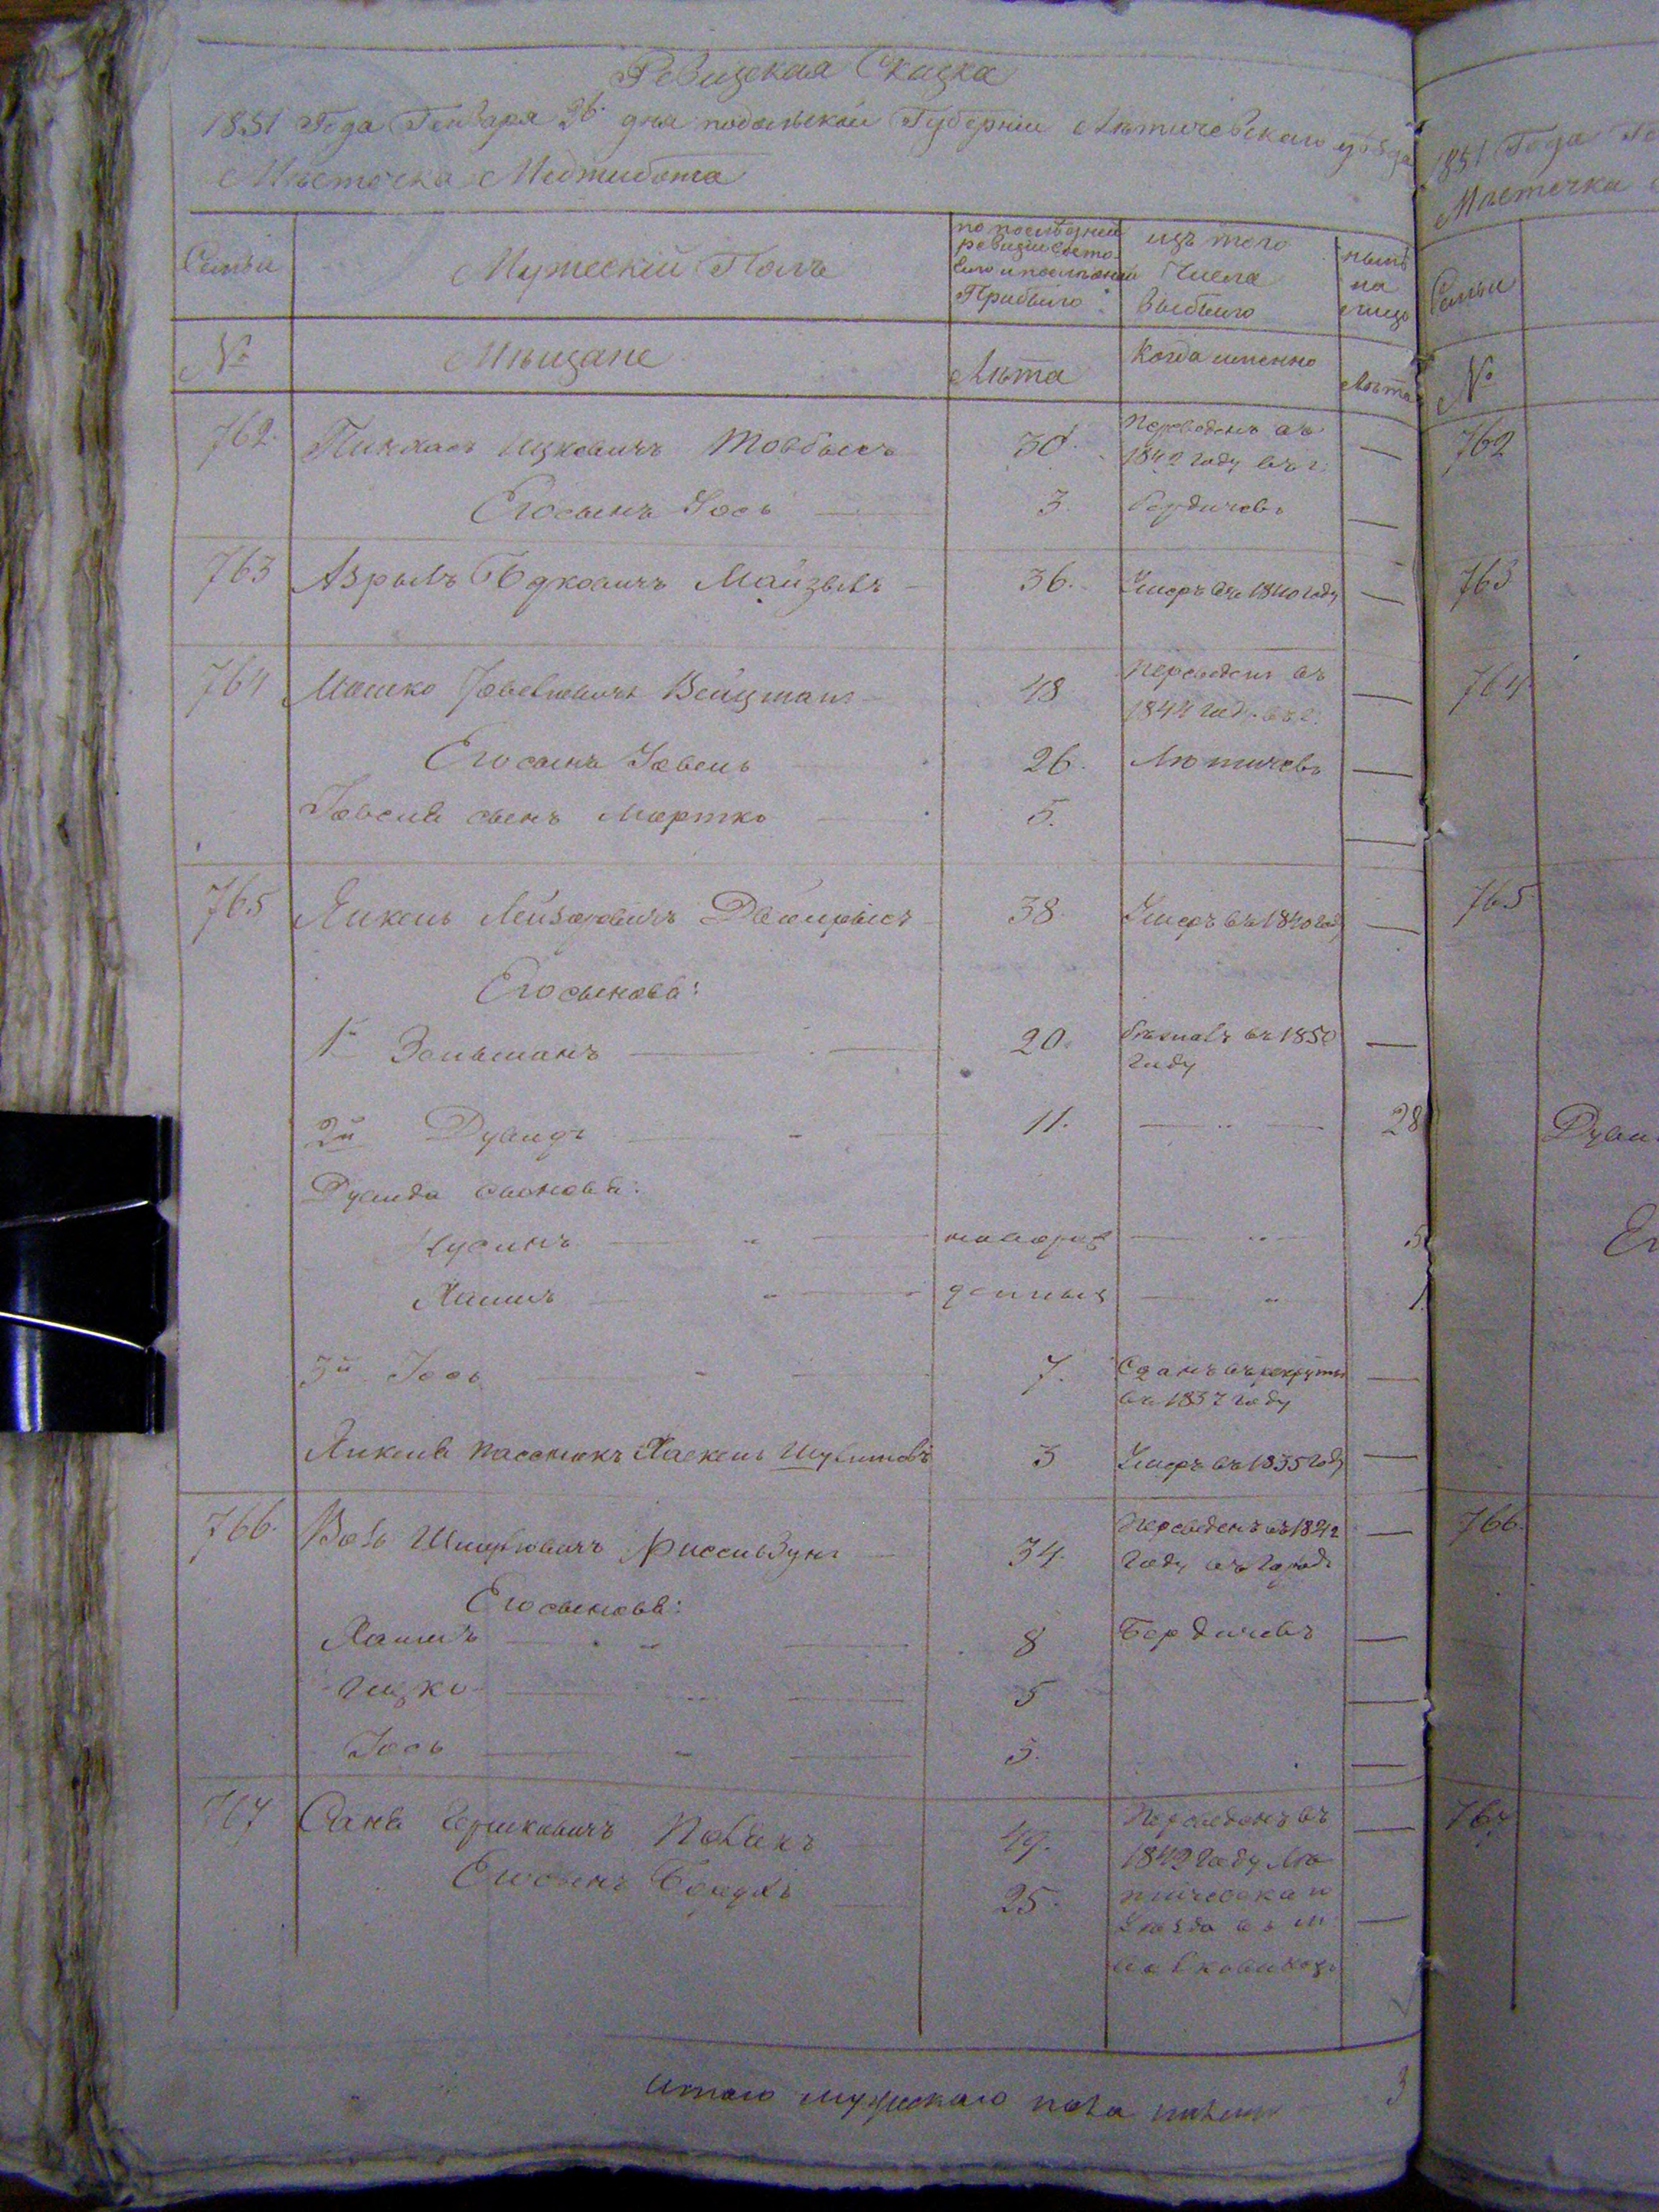 Ревизская Сказка
1851 Года Генваря 26 дня подольской Губернии Лѣтичевскаго уѣзда
Мѣстечка Меджибожа
Семьи
Мужескій Полъ
по послѣдней
ревизіи состо-
яло и после оной
Прибыло
изъ того
Числа
Выбыло
нынѣ
на
лицо
№
Мѣщане
Лѣта
Когда именно
Лѣта
762. Пинхасъ Ицковичъ Товбысъ 30. Переведенъ въ
1842 году въ г.
Его сынъ Іось 3. Бердичевъ
763 Азрылъ Юдковичъ Майзылъ 36. Умеръ въ 1840 году
764 Мошко Іовелювичъ Вейцманъ 48 Переведенъ въ
1844 году въ г.
Его сынъ Іовель 26. Лютичевъ
Іовеля сынъ Мортко 5.
765 Янкель Лейзоровичъ Двойрысъ 38. Умеръ въ 1840 году
Его сыновья:
1й Зельманъ 20. въ 1850
году
2й Дувидъ 11. 28
Дувида сыновья:
Нусинъ новорож 5
Хаимъ денныя 1.
3й Іось 7. Сданъ въ рекруты
въ 1837 году
Янкеля пасынокъ Хаскель 3 Умеръ въ 1835 году
766. Волъ Шмулювичъ Фиссельзунъ 34. Переведенъ въ 1842
году въ городъ
Его сыновья:
Хаимъ 8 Бердичевъ
Ицко 5
Іось 3.
767 Саня Гершковичъ Полякъ 49. Переведенъ въ
1842 году Лю
Его сынъ Борухъ 25. тичевскаго
Уѣзда въ м.
Волковинцы
итого мужескаго пола 3
1851 Года Ге
Мѣстечка
Семьи
№
762
763
764
765
Дуви
Ег
766.
767